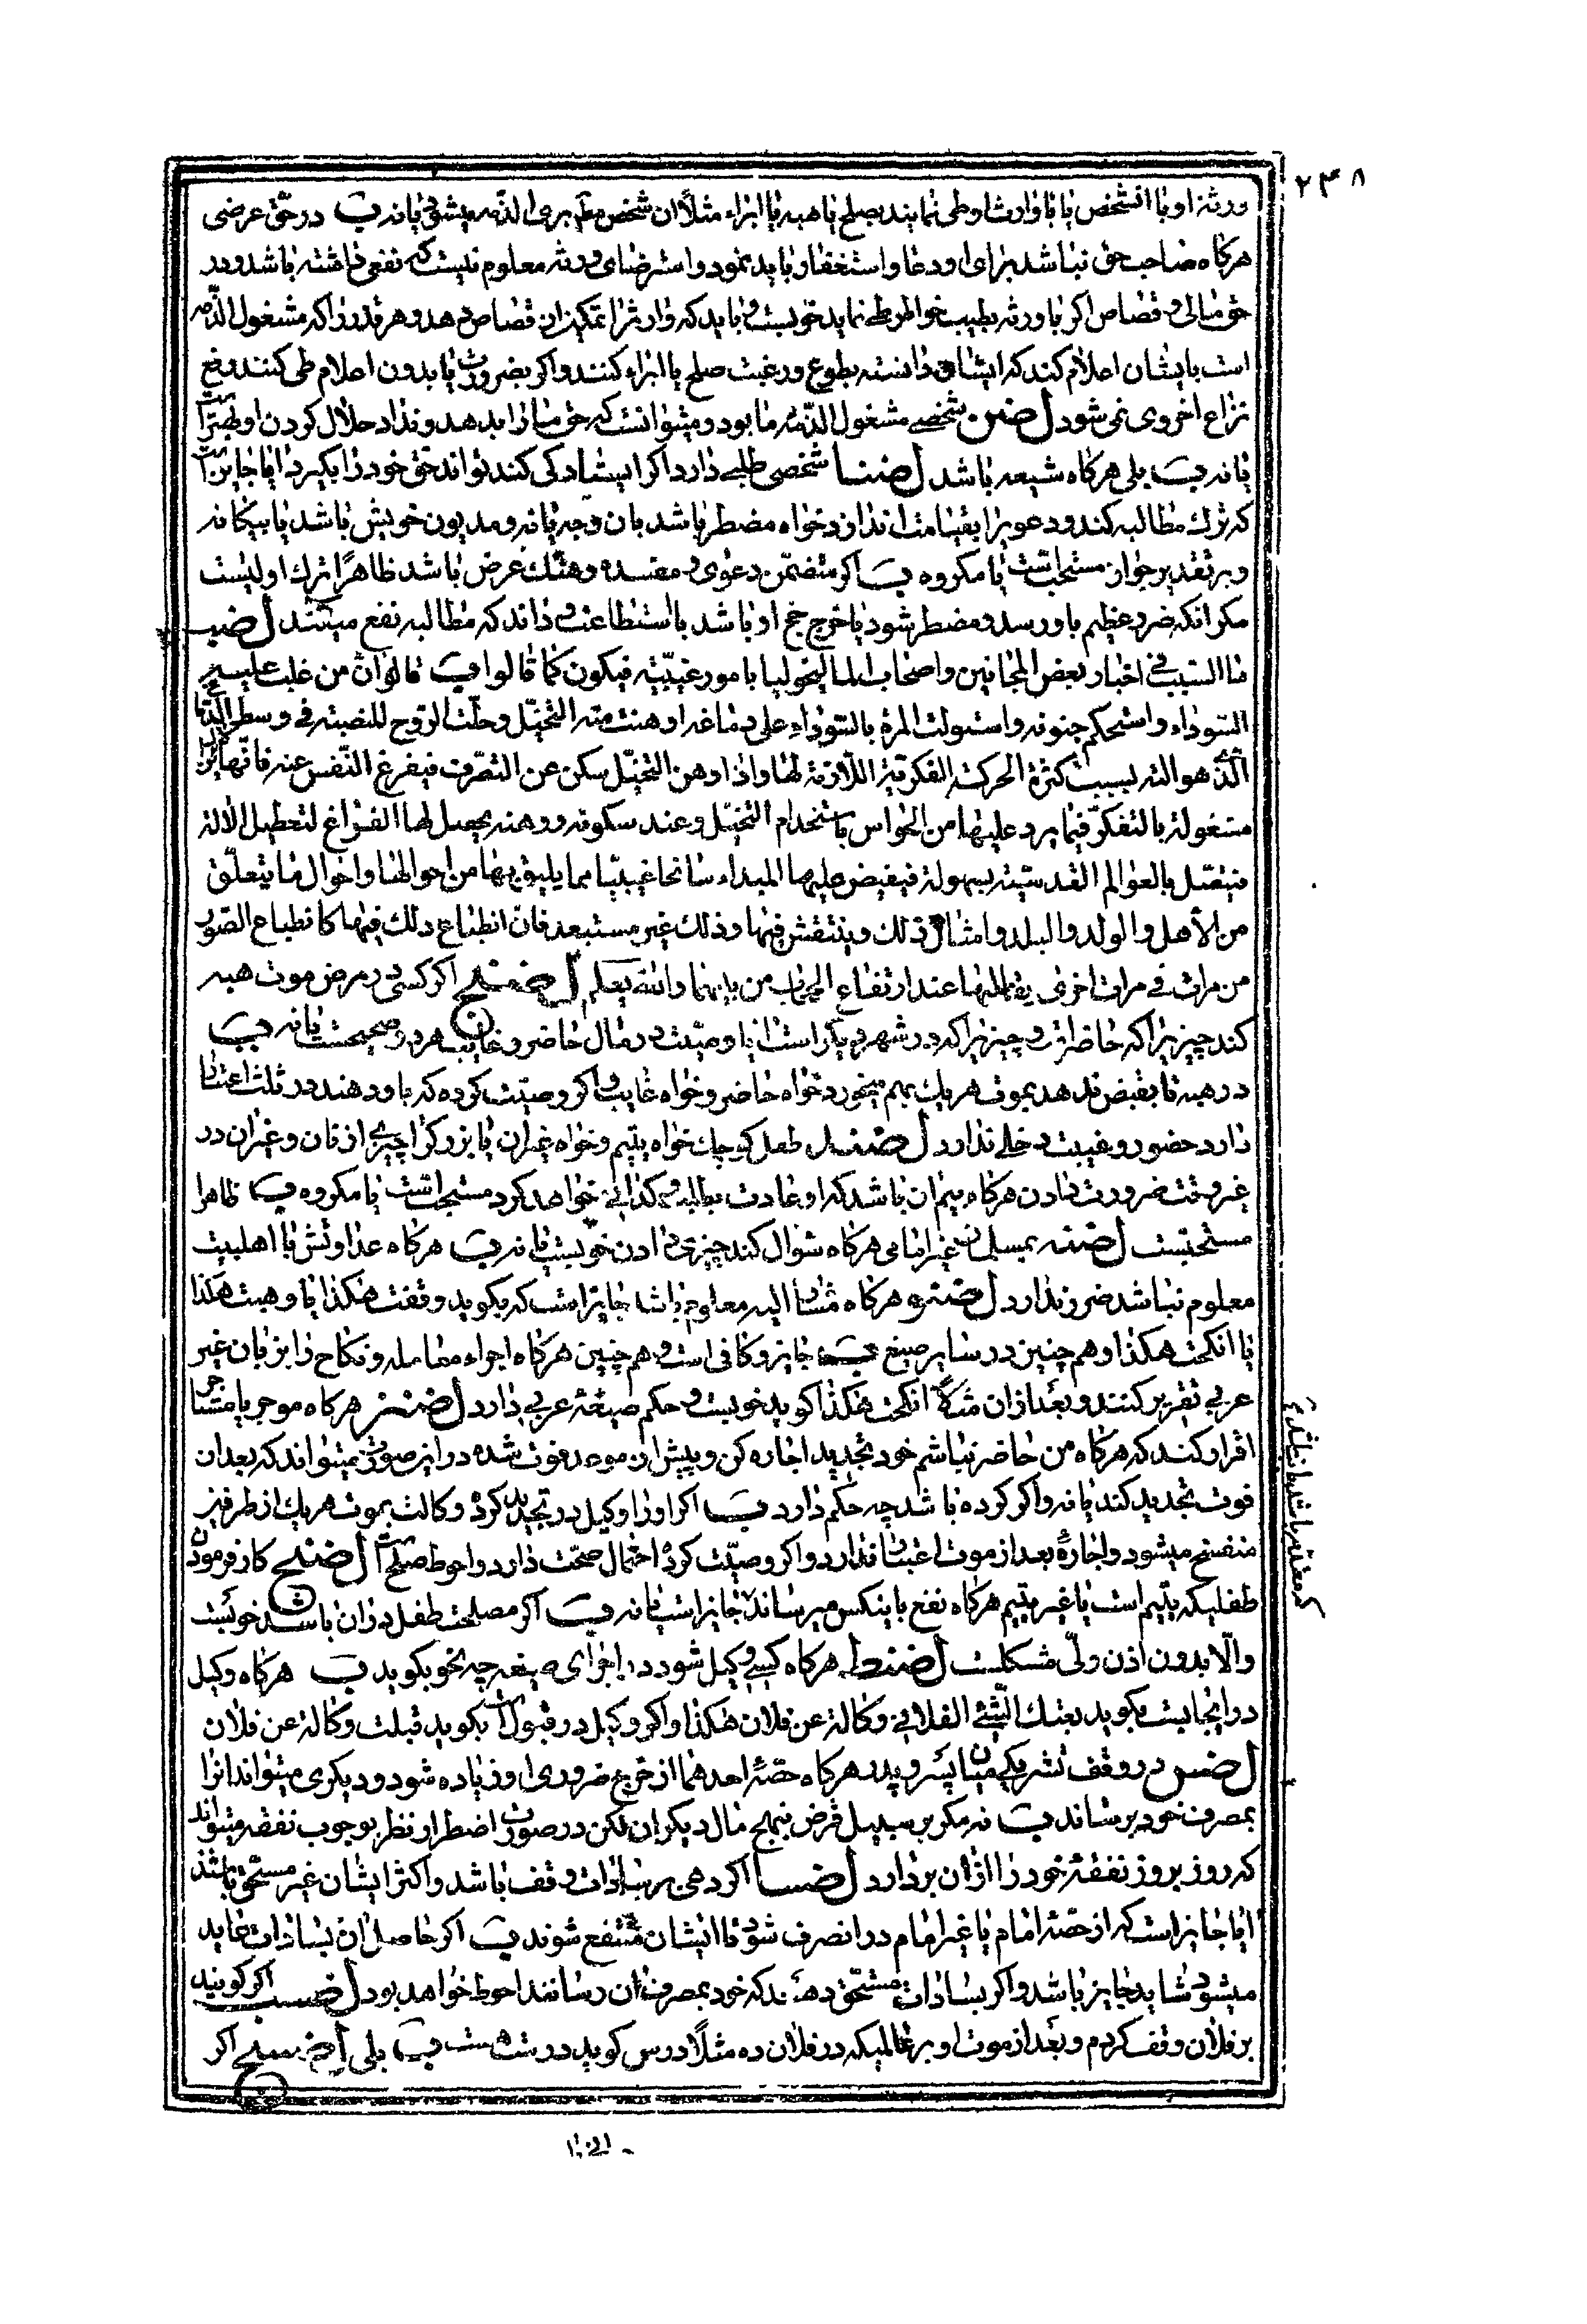 ۲۳۸
ورثهٔ او با انشخص یا با وارث او طی نمایند بصلح یا هبه یا ابراء مثلا ان شخص میّت بری الذمه میشود یا نه ب در حق عرضی
هرکاه صاحب حق نباشد برای او دعا و استغفار باید نمود و استرضای ورثه معلوم نیست که نفعی داشته باشد و در
حق مالی و قصاص اکر با ورثه بطیب خواطر طی نماید خوبست و باید که وارث را تمکین از قصاص دهد و هر قدر را که مشغول الذمه
است بایشان اعلام کند که ایشان دانسته بطوع و رغبت صلح یا ابراء کنند و اکر بضرورت یا بدون اعلام طی کنند رفع
نزاع اخروی نمی شود لضن شخصی مشغول الذمه ما بود و میتوانست که حق ما را بدهد و نداد حلال کردن او بهتر است
یا نه ب بلی هرکاه شیعه باشد لضنا شخصی طلبی دارد اکر ایستادکی کند تواند حق خود را بکیرد ایا جایز است
که ترک مطالبه کند و دعوی را بقیامت اندازد خواه مضطر باشد بان وجه یا نه و مدیون خویش باشد یا بیکانه
و بر تقدیر جواز مستحب است یا مکروه ب اکر متضمن دعوی و مفسده و هتک عرض باشد ظاهراً ترک اولیست
مکر انکه ضرر عظیم باو رسد و مضطر شود یا خرج حج او باشد باستطاعت و داند که مطالبه نفع میکند لضنب
ما السبب فی اخبار بعض المجانین و اصحاب المالیخولیا بامور غیبیّة فیکون کما قالوا ب قالوا انّ من غلب علیه
السّوداء و استحکم جنونه و استولت المرة بالسّوداء علی دماغه اوهنت منه التخیّل و حلّت الرّوح المنصبة فی وسط الدماغ
الّذی هو الته بسبب کثرة الحرکة الفکریّة اللّازمة لها و اذا وهن التخیّل سکن عن التصرف فیفرغ النّفس عنه فانّها
مشغولة بالتفکر فیما یرد علیها من الحواس باستخدام التخیّل و عند سکونه و وهنه یحصل لها الفراغ لتعطیل الالة
فیتصل بالعوالم القدسیّة بسهولة فیفیض علیها المبداء سانحا غیبیّا مما یلیق بها من احوالها و احوال ما یتعلّق
من الأهل و الولد و البلد و امثال ذلک و ینتقش فیها و ذلک غیر مستبعد فان انطباع ذلک فیها کانطباع الصّور
من مراة فی مراة اخری یقابلها عند ارتفاع الحجاب من بینهما و الله یعلم لضنج اکر کسی در مرض موت هبه
کند چیزیرا که حاضر است و چیزیرا که در شهر دیکر است ایا وصیّت در مال حاضر و غایب هر دو صحیحست یا نه ب
در هبه تا بقبض ندهد بموت هریک بهم میخورد خواه حاضر و خواه غایب و اکر وصیّت کرده که باو دهند در ثلث اعتبار
دارد حضور و غیبت دخلی ندارد لضند طفل کوچک خواه یتیم و خواه غیر ان یا بزرکرا چیزی از نان و غیر ان در
غیر وقت ضرورت دادن هرکاه بیم ان باشد که او عادت بطلب و کدائی خواهد کرد مستحب است یا مکروه ب ظاهرا
مستحبست لضنه بمسلمان غیر امامی هرکاه سؤال کند چیزی دادن خوبست یا نه ب هرکاه عداوتش با اهلبیت
معلوم نباشد ضرر ندارد لضنو هرکاه مشار الیه معلوم باشد جایز است که بکوید وقفت هکذا یا وهبت هکذا
یا انکحت هکذا و هم چنین در سایر صیغ ب جایز و کافی است و هم چنین هرکاه اجراء معامله و نکاح را بزبان غیر
عربی تقریر کنند و بعد از ان مثلا انکحت هکذا کوید خوبست و حکم صیغهٔ عربی دارد لضنز هرکاه موجر با مستاجر
اقرار کند که هرکاه من حاضر نباشم خود تجدید اجاره کن و پیش از موعد فوت شده در این صورت میتواند که بعد از
فوت تجدید کند یا نه و اکر کرده باشد چه حکم دارد ب اکر او را وکیل در تجدید کرده وکالت بموت هریک از طرفین
منفسخ میشود و اجارهٔ بعد از موت اعتبار ندارد و اکر وصیّت کرده احتمال صحّت دارد و احوط صلح است لضنح کار فرمودن
طفلیکه یتیم است یا غیر یتیم هرکاه نفع باینکس میرساند جایز است یا نه ب اکر مصلحت طفل در ان باشد خوبست
و الّا بدون اذن ولیّ مشکلست لضنط هرکاه کسی وکیل شود در اجرای صیغه چه نحو بکوید ب هرکاه وکیل
در ایجابست بکوید بعتک الشّیئ الفلانی وکالة عن فلان هکذا و اکر وکیل در قبول است بکوید قبلت وکالة عن فلان
لضس در وقف تشریکی میان پسر و پدر هرکاه حصّهٔ احدهما از خرج ضروری او زیاده شود و دیکری میتواند انرا
بمصرف خود برساند ب نه مکر بر سبیل قرض بنهج مال دیکران لکن در صورت اضطرار نظر بوجوب نفقه میتواند
که روز بروز نفقهٔ خود را از ان بردارد لضسا اکر دهی بر سادات وقف باشد و اکثر ایشان غیر مستحق باشند
ایا جایز است که از حصّهٔ امام یا غیر امام در ان صرف شود تا ایشان منتفع شوند ب اکر حاصل ان بسادات عاید
میشود شاید جایز باشد و اکر بسادات مستحق دهند که خود بمصرف ان رسانند احوط خواهد بود لضسب اکر کویند
بر فلان وقف کردم و بعد از موت او بر عالمیکه در فلان ده مثلاً درس کوید درست هست ب بلی لضسج اکر